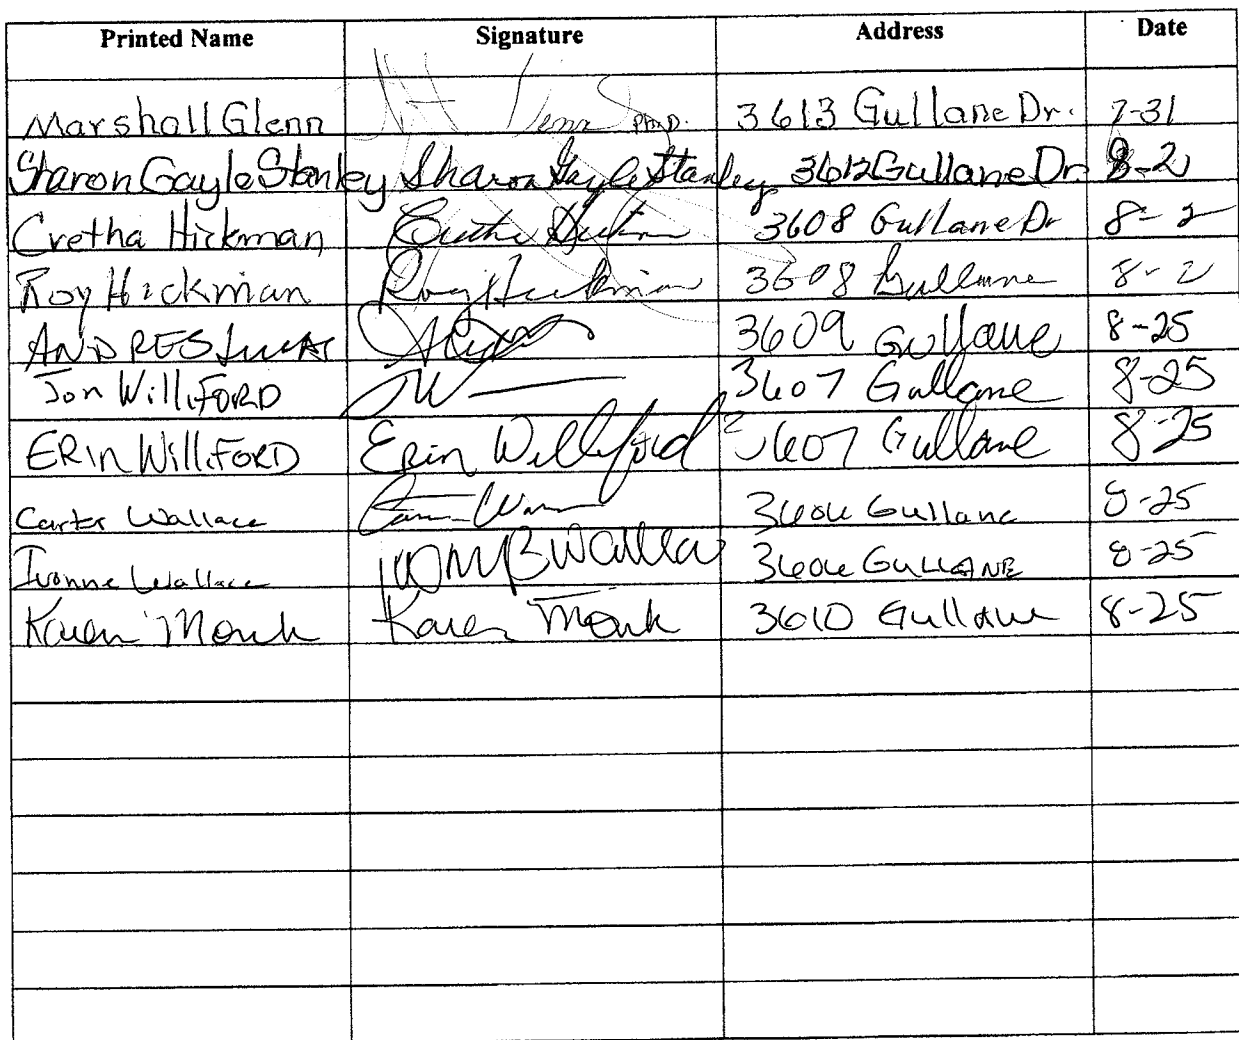 Printed Name Signature Address Date
Marshall Glenn Ph.D. 3613 Gullane Dr. 7-31
Sharon Gayle Stanley Sharon Gayle Stanley 3612 Gullane Dr 8-2
Cretha Hickman 3608 Gullane Dr 8-2
Roy Hickman Roy Hickman 3608 Gullane 8-2
ANDRES 3609 Gullane 8-25
Jon WilliFORD JW 3607 Gullane 8-25
ERin WilliFORD Erin Williford 3607 Gullane 8-25
Carter Wallace 3606 Gullane 8-25
Ivonne Wallace 3606 GULLANE 8-25
Karen Monk Karen Monk 3610 Gullane 8-25